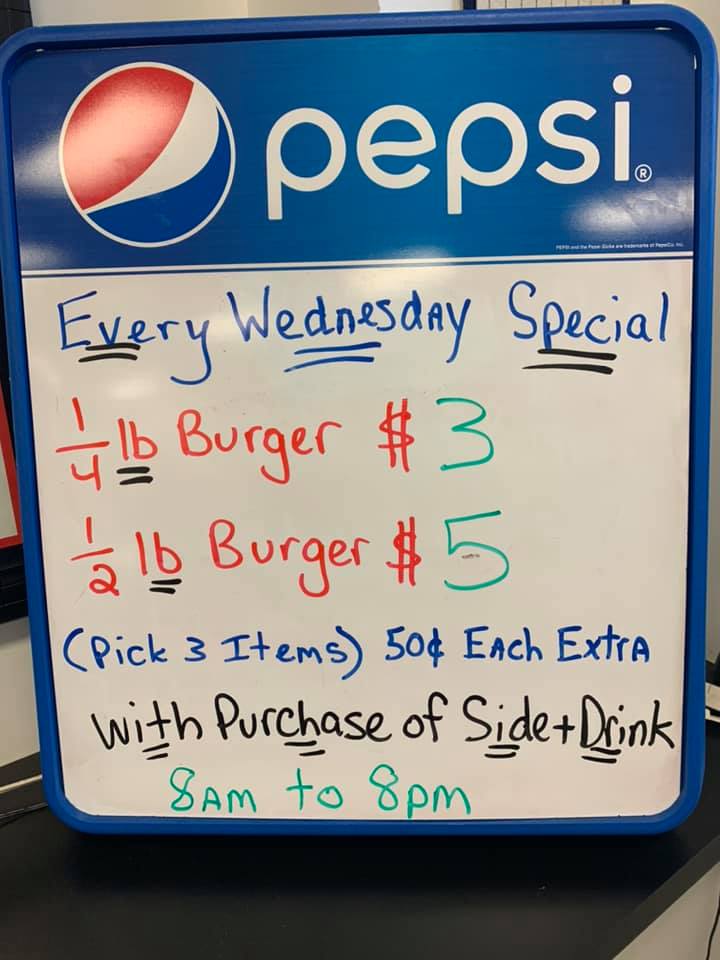 pepsi®
PEPSI and the Pepsi Globe are trademarks of PepsiCo, Inc.
Every Wednesday Special
1/4 lb Burger $3
1/2 lb Burger $5
(Pick 3 Items) 50¢ EAch ExtrA
With Purchase of Side+Drink
8AM to 8pm